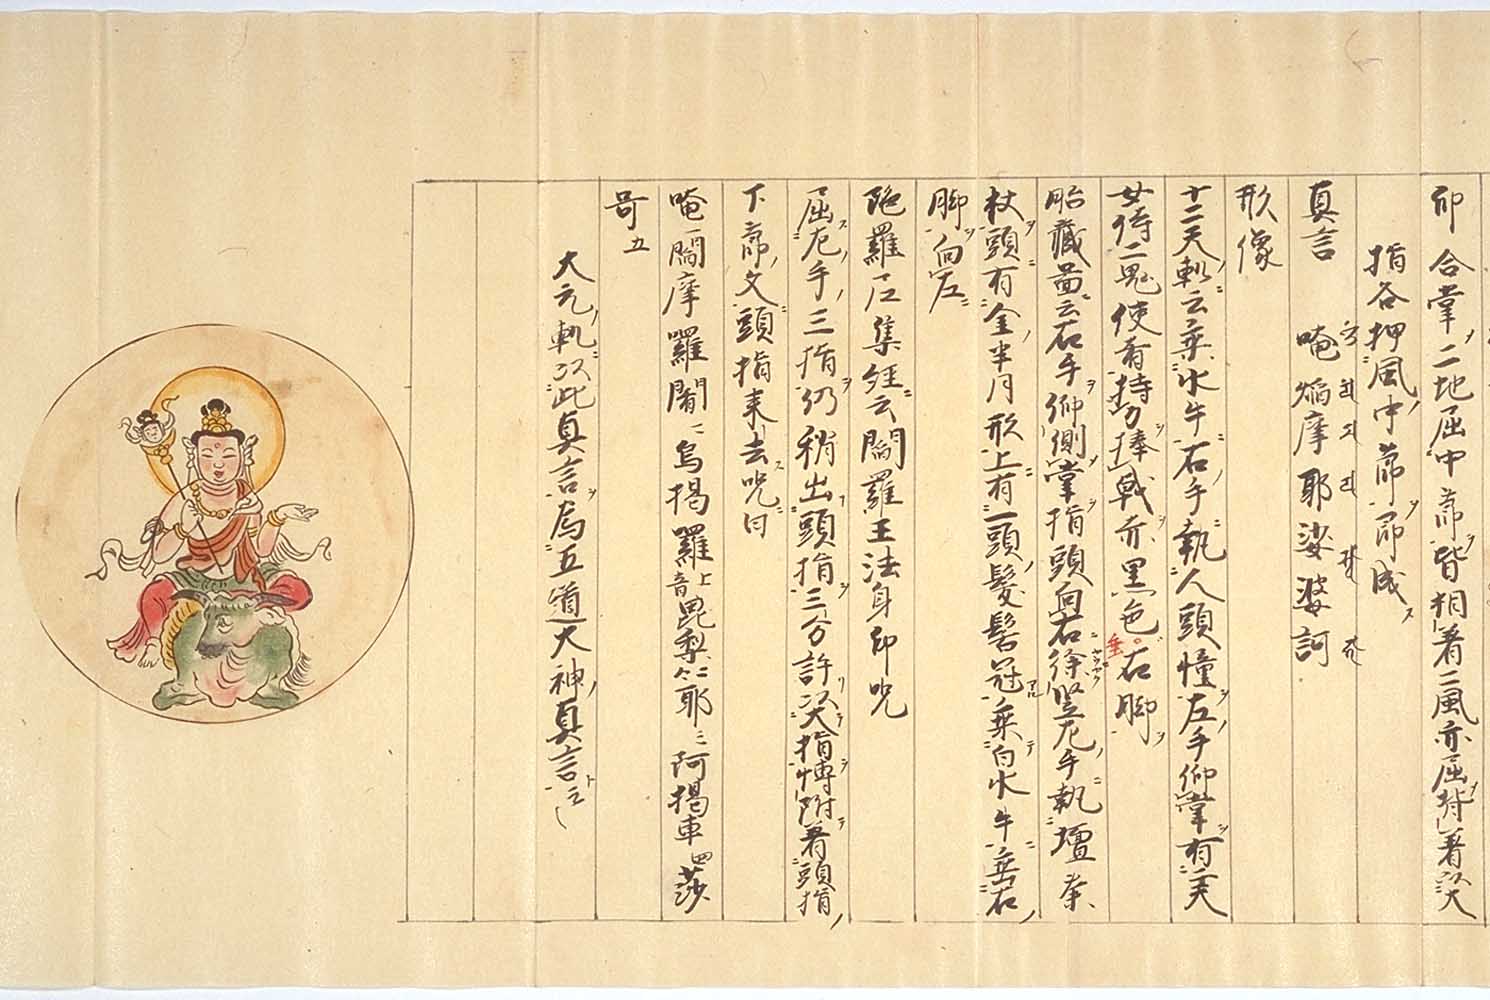 印 合掌二地屈中節皆相著二風亦屈背著以大
指各押風中節一節成ス
真言 唵 焔摩耶 娑婆訶
形像
十二天軌云乗水牛右手執人頭幢左手仰掌有二天
女侍二鬼使者持刀捧戟亦黒色垂右脚
胎蔵啚云右手仰側掌指頭向右徐竪左手執壇荼
杖頭有金半月形上有一頭髪髻冠乗白水牛垂右
脚向左
陀羅尼集経云閻羅王法身印呪
屈左手三指仍稍出頭指三分許以大指博附著頭指
下節文頭指来去呪曰
唵一閻摩羅闍二烏掲羅上音毘梨仁耶三阿掲車四莎
哿五
大元軌以此真言為五道大神真言云云